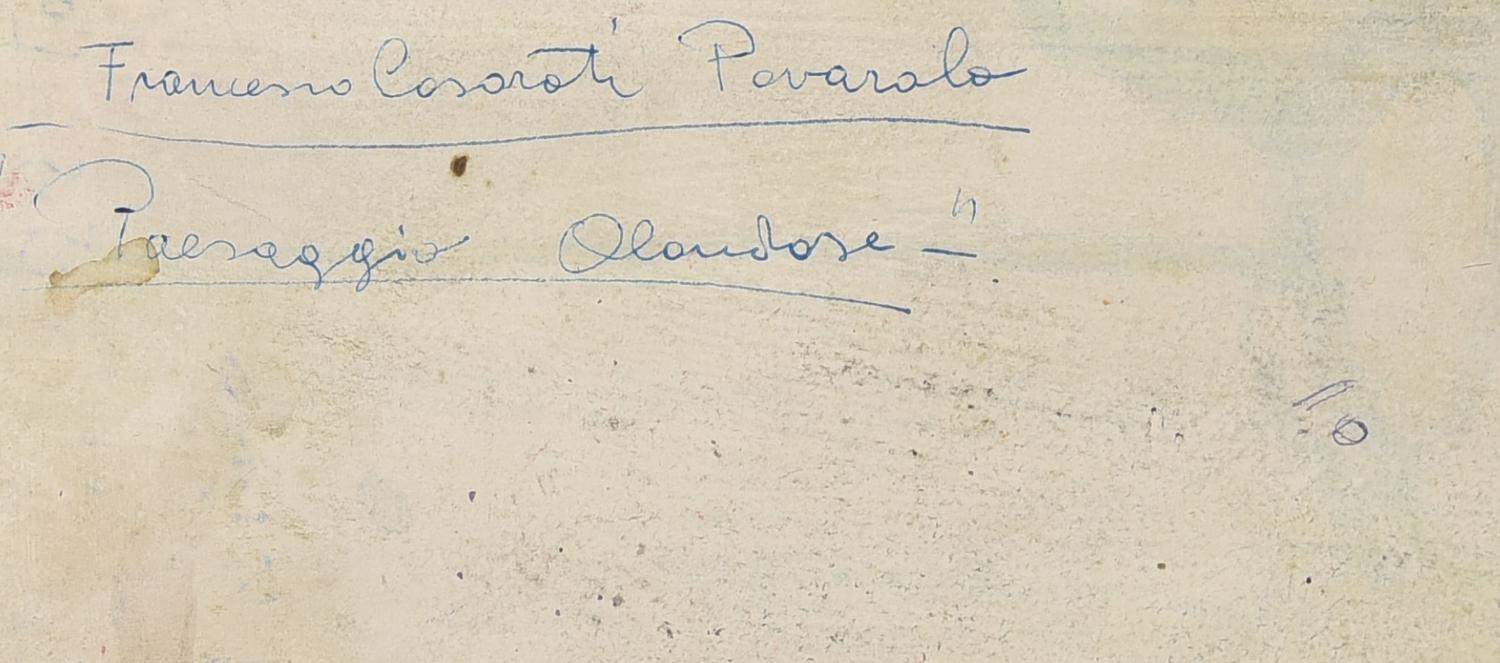 Francesco Casorati Pavarolo
" Paesaggio Olandese - "